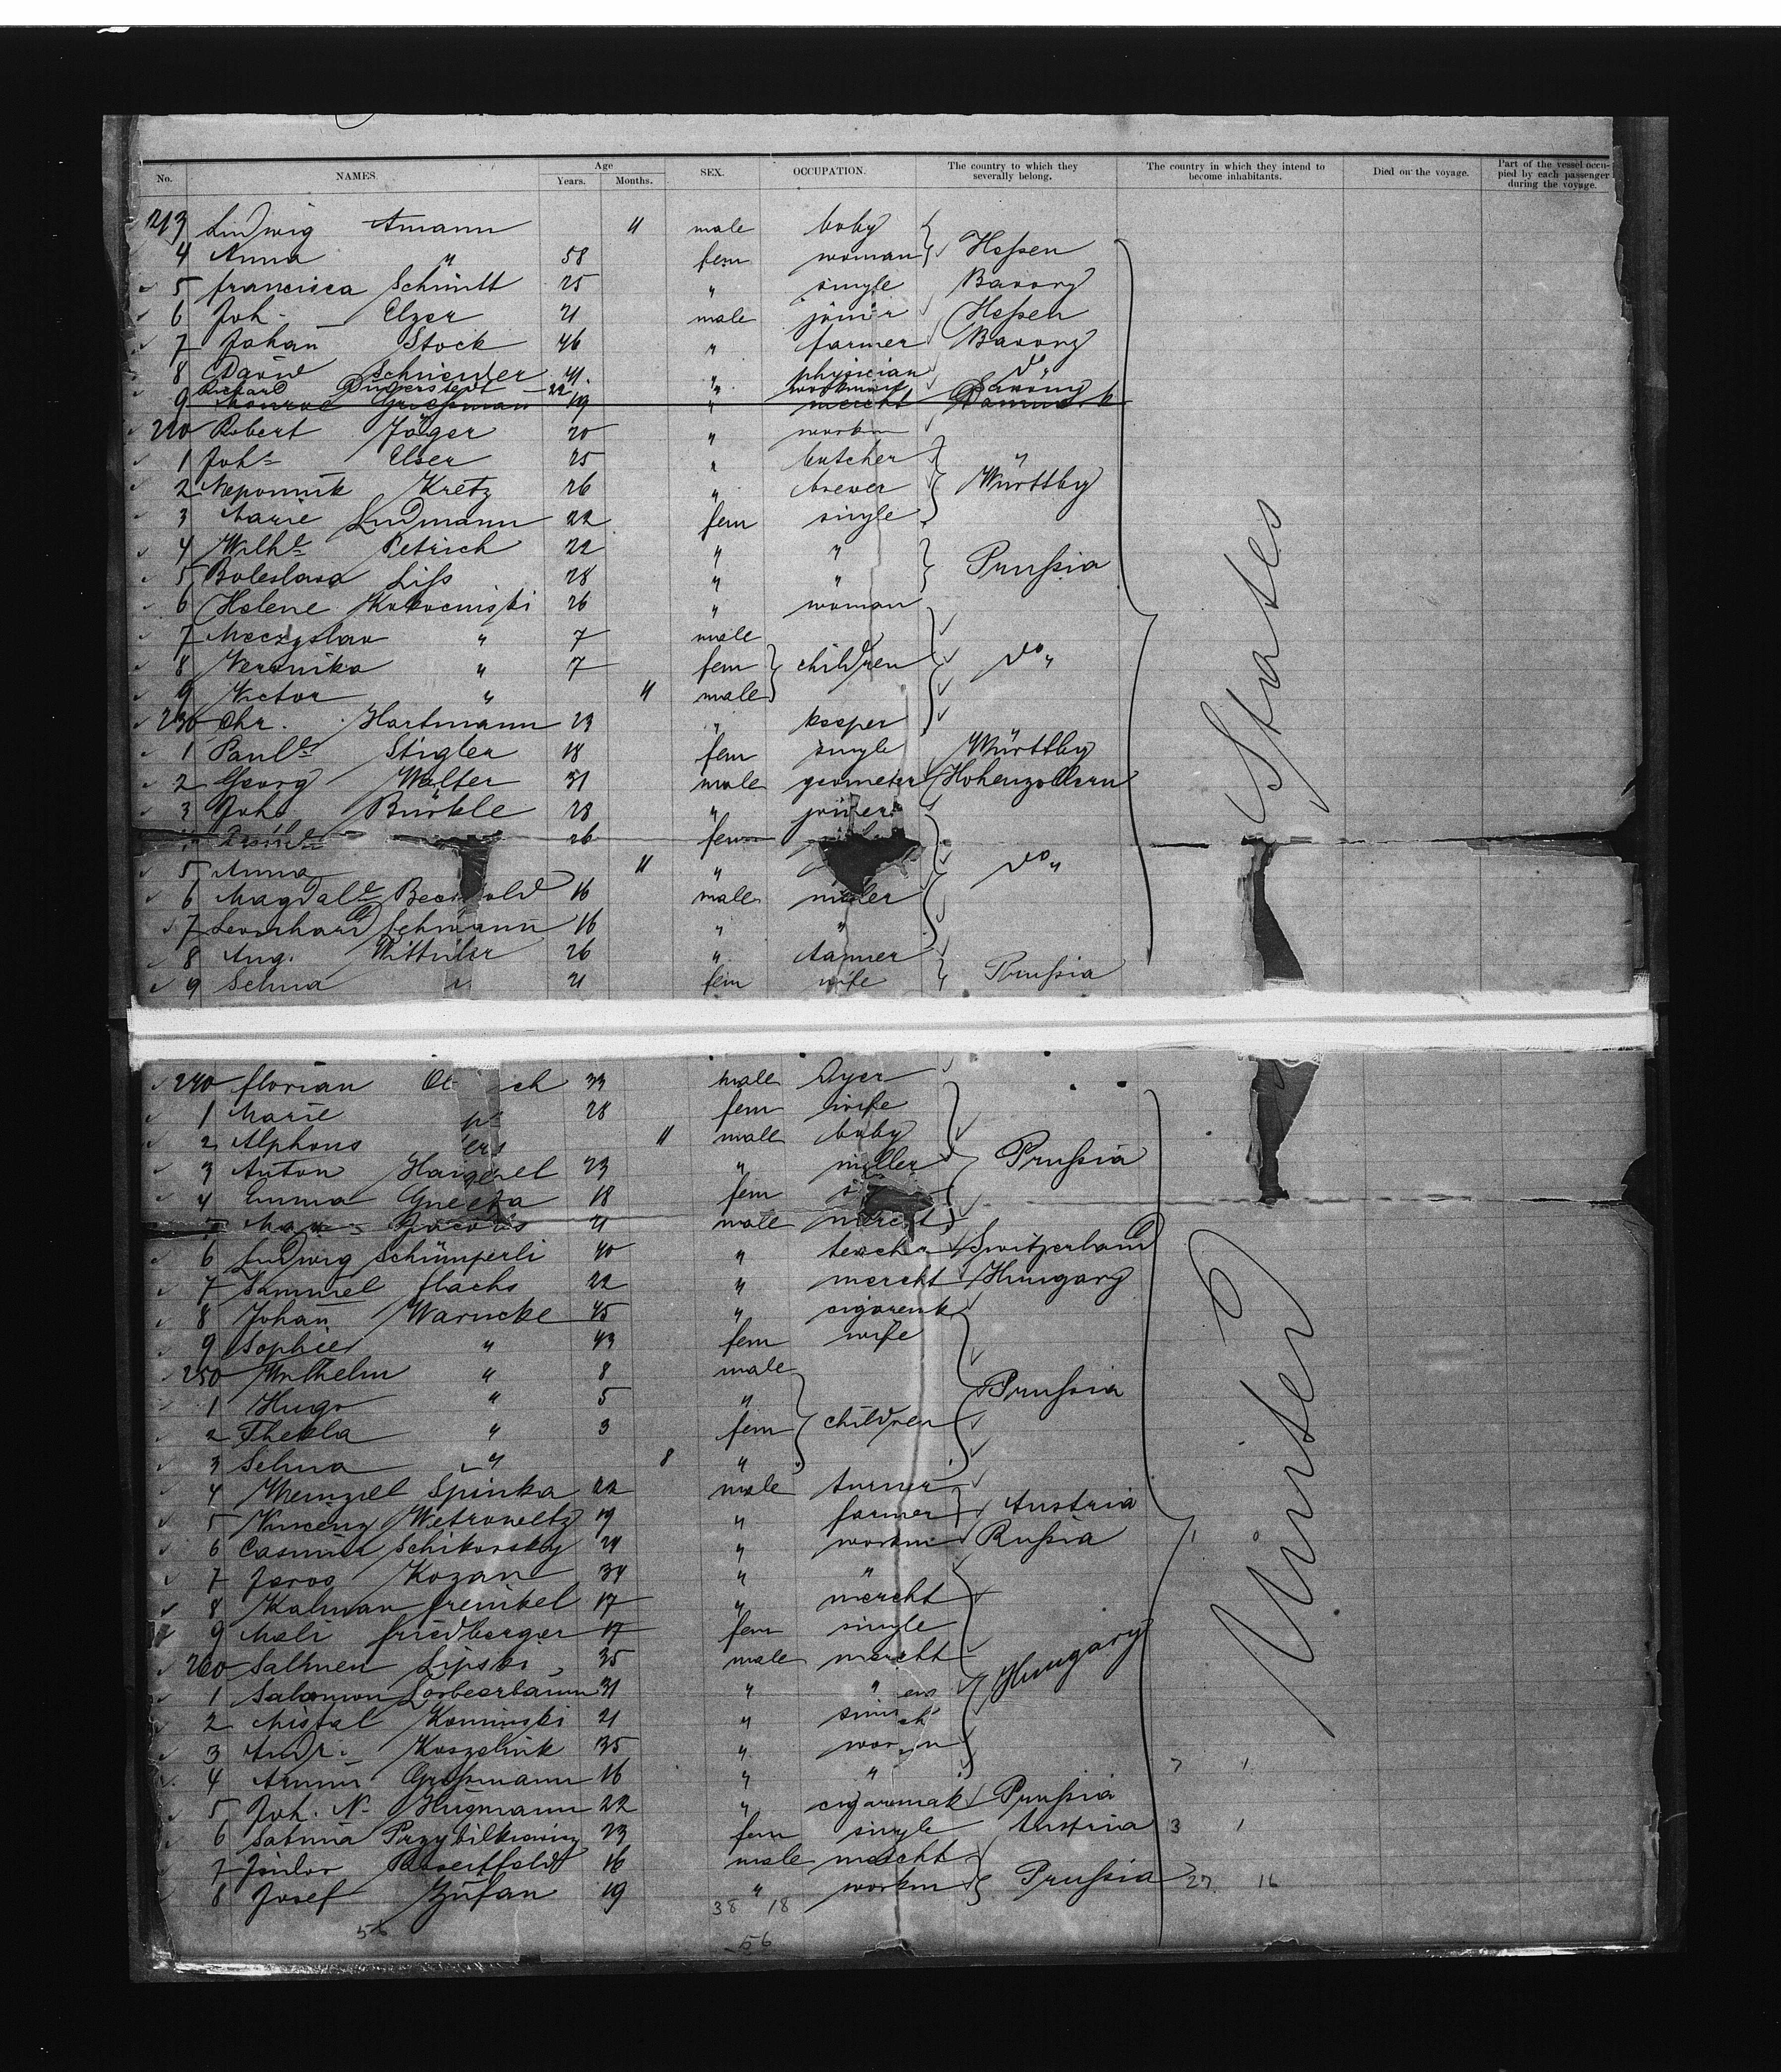 No. NAMES. Age Years. Months. SEX. OCCUPATION. The country to which they severally belong. The country in which they intend to become inhabitants. Died on the voyage. Part of the vessel occupied by each passenger during the voyage.
213 Ludwig Amann 11 male baby
4 Anna " 58 fem woman Heßen
5 francisca Schmitt 25 " single Bavory
6 Joh. Elzer 21 male joiner Heßen
7 Johan Stock 46 " farmer Bavory
8 David Schneider 41 " physician do"
Richard 22 " workman
9 19 " mercht
220 Robert Jäger 20 " workm
1 Johs Elser 25 " butcher "
2 Nepomuk Kretz 26 " brewer Württbg
3 Marie Ludmann 22 fem single
4 Wilhe Petrich 22 " " Prußia
5 Boleslava Liss 28 " "
6 Helene 26 " woman
7 Meczyslav " 7 male
8 Veronika " 7 fem children do"
9 Victor " 11 male
230 Chr. Hartmann 23 " keeper
1 Paule Stigler 18 fem single Württbg
2 Georg Walter 31 male geometer Hohenzollern
3 Johs Bürkle 28 " joiner
26 fem
5 Anna 11 " do"
6 Magdale 16 male miller
7 Leonhard Lehmann 16 " "
8 Aug. 26 " tanner
9 Selma " 21 fem wife Prußia
States
240 florian 33 male dyer
1 Marie 28 fem wife
2 Alphons 11 male baby
3 Anton 23 " miller Prußia
4 Emma 18 fem
Jacobs 21 male mercht
6 Ludwig Schümperli 40 " teacher Switzerland
7 Sammel flachs 22 " mercht Hungary
8 Johan Warncke 45 "
9 Sophie " 43 fem wife
250 Wilhelm " 8 male
1 Hugo " 5 " Prußia
2 Thekla " 3 fem children
3 Selma " 8 "
4 Wenzel Spinka 22 male turner
5 Vincenz 19 " farmer Austria
6 Casimir Schikorsky 24 " workm Rußia
7 Kozan 34 " "
8 Kalman frenkel 17 " mercht
9 Mali friedberger 17 fem single
260 Salmen Lipski 35 male mercht Hungary
1 Salamon Lorbeerbaum 31 " "
2 Kominski 21 "
3 Andr. 35 "
4 Armin Großmann 16 " " 7 1
5 Joh. N. Hugmann 22 " cigarmak Prußia
6 Sabina 23 fem single Austria 3 1
7 16 male mercht
8 Josef 19 " workm Prußia 27 16
United
38 18
56 56